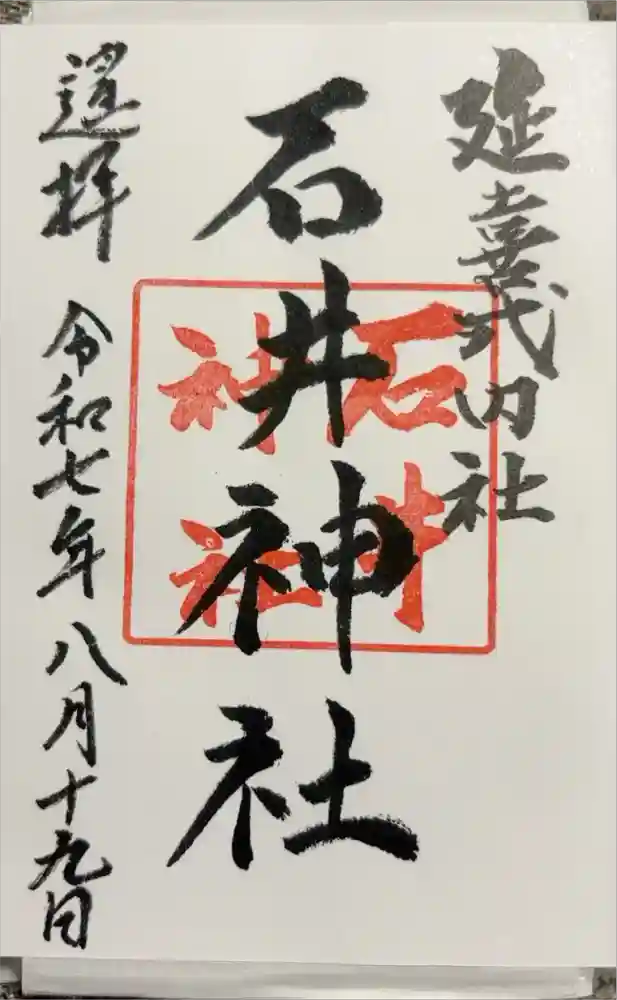 延喜式内社
石井神社
石井
神社
遥拝 令和七年八月十九日